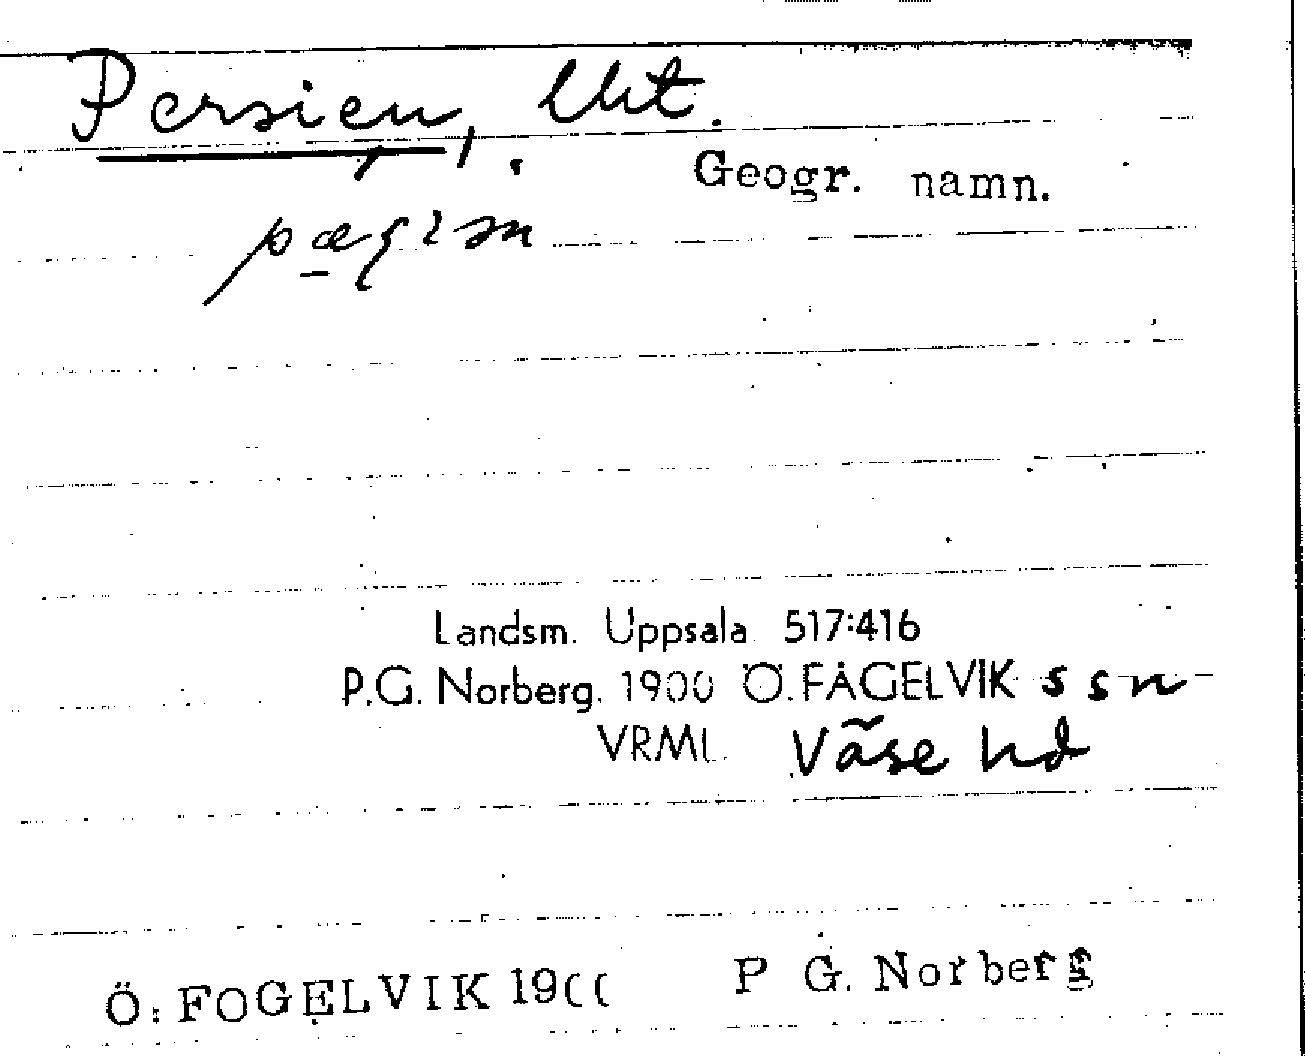 Persien, lht.
Geogr. namn.
Landsm. Uppsala 517:416
P.G. Norberg. 1900 Ö.FÅGELVIK ssn
VRML. Väse hd
Ö. FOGELVIK 1900 P G. Norberg